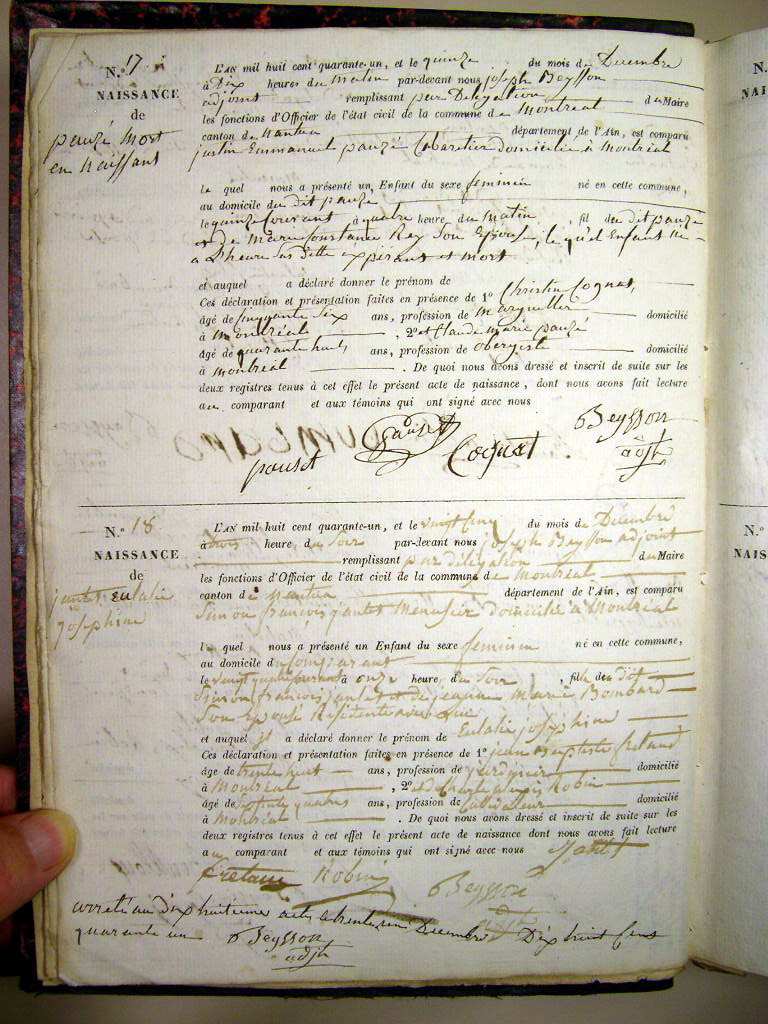 N.º 17.
NAISSANCE
de
pauzé Mort
en Naissant
L'AN mil huit cent quarante-un, et le quinze du mois de Decembre
à Dix heures du matin par-devant nous joseph Beysson
adjoint remplissant par Délégation du Maire
les fonctions d'Officier de l'état civil de la commune de Montréal
canton de Nantua département de l'Ain, est comparu
justin Emmanuel pauzé Cabaretier Domicilié à Montréal
le quel nous a présenté un Enfant du sexe feminin né en cette commune,
au domicile du dit pauzé
le quinze Courant à quatre heure du Matin, fil du dit pauzé
et de Marie Constance Rey Son Epouse, le quel Enfant né
a L'heure sus ditte expirant et mort
et auquel a déclaré donner le prénom de
Ces déclaration et présentation faites en présence de 1º Christin Cognat,
âgé de Soixante Six ans, profession de Marguiller domicilié
à Montréal, 2º et Claude Marie pauzé
âgé de quarante huit, ans, profession de obergiste domicilié
à Montreal. De quoi nous avons dressé et inscrit de suite sur les
deux registres tenus à cet effet le présent acte de naissance, dont nous avons fait lecture
au comparant et aux témoins qui ont signé avec nous
pauset Pauset Cognat Beysson
adjt
N.º 18.
NAISSANCE
de
jantet Eulalie
josephine
L'AN mil huit cent quarante-un, et le vingt cinq du mois de Décembre
à trois heure du Soir par-devant nous joseph Beysson adjoint
remplissant par délégation du Maire
les fonctions d'Officier de l'état civil de la commune de Montréal
canton de Nantua département de l'Ain, est comparu
Simon françois jantet Menusier Domicilié à Montréal
le quel nous a présenté un Enfant du sexe feminin né en cette commune,
au domicile du Comparant
le vingt quatre Courant à onze heure du Soir, fille du dit
Simon françois jantet et de jeanne Marie Bombard
Son Epouse Residente avec lui
et auquel il a déclaré donner le prénom de Eulalie josephine
Ces déclaration et présentation faites en présence de 1º jean Baptiste Cretaud
âge de trente huit ans, profession de domicilié
à Montréal, 2º et de Charle Robin
âgé de quatre ans, profession de Cultivateur domicilié
à Montréal. De quoi nous avons dressé et inscrit de suite sur les
deux registres tenus à cet effet le présent acte de naissance dont nous avons fait lecture
au comparant et aux témoins qui ont signé avec nous Jantet
Robin Beysson
adjt
arreté au dix huitieme acte a trente un Decembre Dix huit Cens
quarante un Beysson
adjt
N.
NAIS
N.º
NAIS